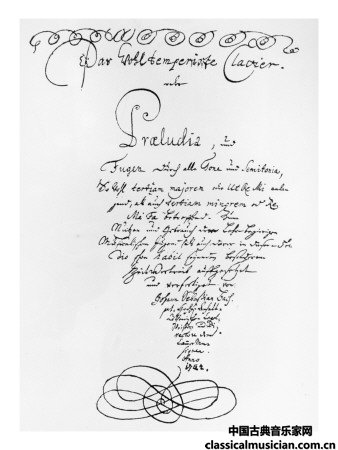 Das Wohltemperirte Clavier.
oder
Præludia, und
Fugen durch alle Tone und Semitonia,
So wohl tertiam majorem oder Ut Re Mi anlan-
gend, als auch tertiam minorem oder Re
Mi Fa betreffend. Zum
Nutzen und Gebrauch der Lehr-begierigen
Musicalischen Jugend als auch derer in diesem stu-
dio schon habil seyenden besonderen
Zeitvertreib auffgesetzet
und verfertiget von
Johann Sebastian Bach.
Anno
1722.
中国古典音乐家网
classicalmusician.com.cn